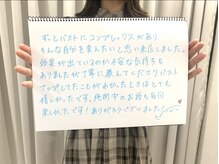 ずっとバストにコンプレックスがあり、
そんな自分を変えたいと思い来店しました。
効果が出ているのか不安な気持ちも
ありましたが丁寧に教えてくださりバスト
アップしてたことがわかったときはとても
嬉しかったです。施術中のお話も毎回
楽しかったです！ありがとうございました！